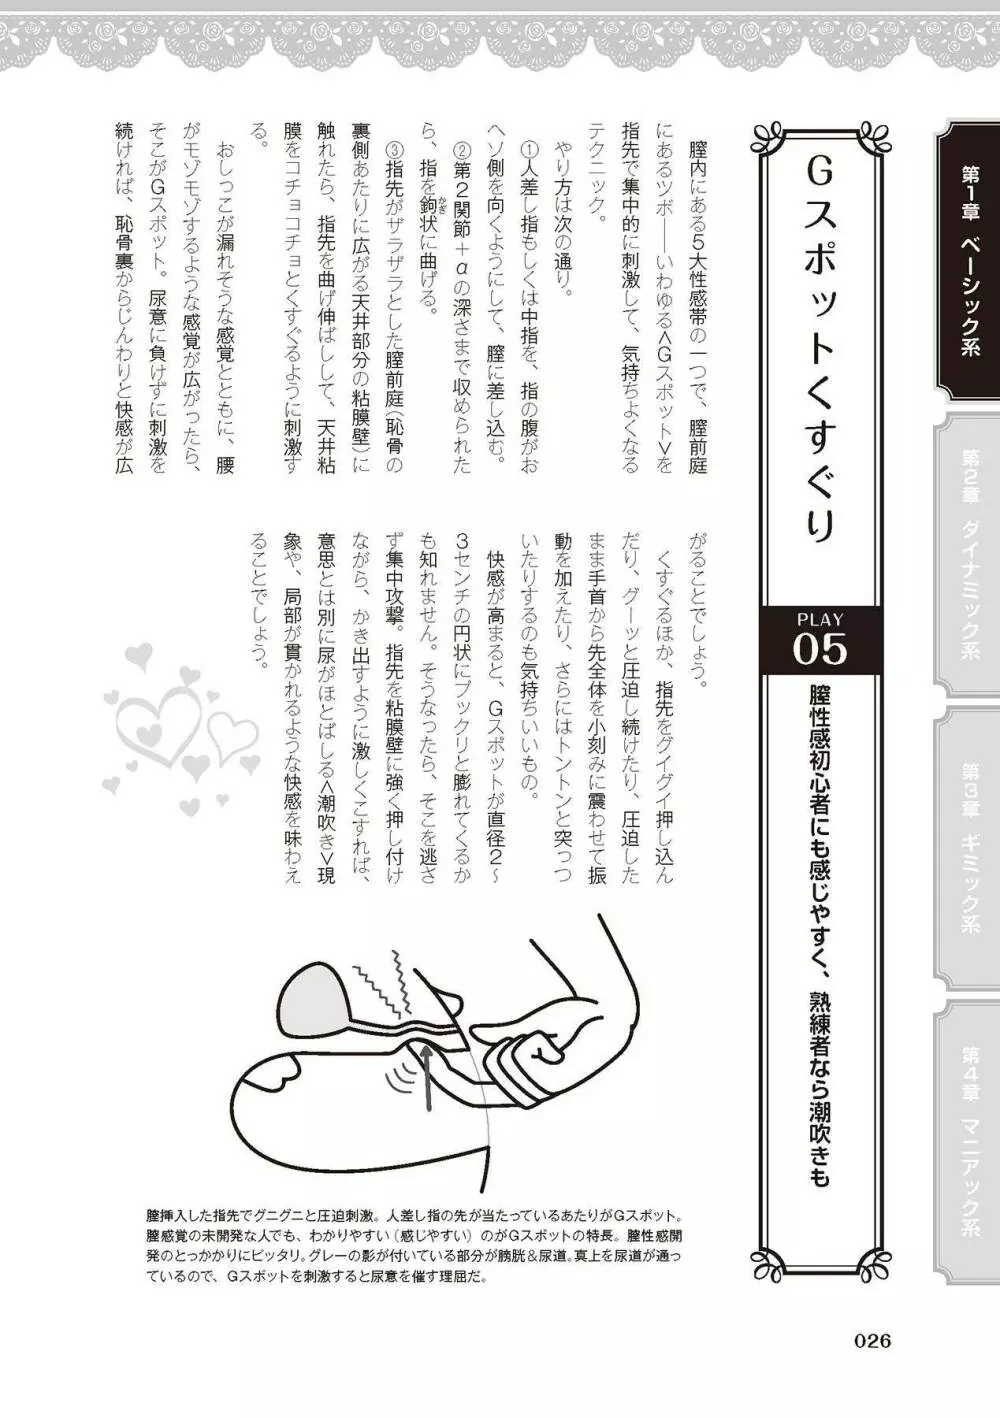 第1章 ベーシック系
第2章 ダイナミック系
第3章 ギミック系
第4章 マニアック系
Gスポットくすぐり
PLAY
05
膣性感初心者にも感じやすく、熟練者なら潮吹きも
膣内にある5大性感帯の一つで、膣前庭
にあるツボ――いわゆる<Gスポット>を
指先で集中的に刺激して、気持ちよくなる
テクニック。
やり方は次の通り。
①人差し指もしくは中指を、指の腹がお
ヘソ側を向くようにして、膣に差し込む。
②第2関節+αの深さまで収められた
ら、指を鉤状に曲げる。
かぎ
③指先がザラザラとした膣前庭(恥骨の
裏側あたりに広がる天井部分の粘膜壁)に
触れたら、指先を曲げ伸ばしして、天井粘
膜をコチョコチョとくすぐるように刺激す
る。
おしっこが漏れそうな感覚とともに、腰
がモゾモゾするような感覚が広がったら、
そこがGスポット。尿意に負けずに刺激を
続ければ、恥骨裏からじんわりと快感が広
がることでしょう。
くすぐるほか、指先をグイグイ押し込ん
だり、グーッと圧迫し続けたり、圧迫した
まま手首から先全体を小刻みに震わせて振
動を加えたり、さらにはトントンと突っつ
いたりするのも気持ちいいもの。
快感が高まると、Gスポットが直径2〜
3センチの円状にプックリと膨れてくるか
も知れません。そうなったら、そこを逃さ
ず集中攻撃。指先を粘膜壁に強く押し付け
ながら、かき出すように激しくこすれば、
意思とは別に尿がほとばしる<潮吹き>現
象や、局部が貫かれるような快感を味わえ
ることでしょう。
膣挿入した指先でグニグニと圧迫刺激。人差し指の先が当たっているあたりがGスポット。
膣感覚の未開発な人でも、わかりやすい(感じやすい)のがGスポットの特長。膣性感開
発のとっかかりにピッタリ。グレーの影が付いている部分が膀胱&尿道。真上を尿道が通っ
ているので、Gスポットを刺激すると尿意を催す理屈だ。
026